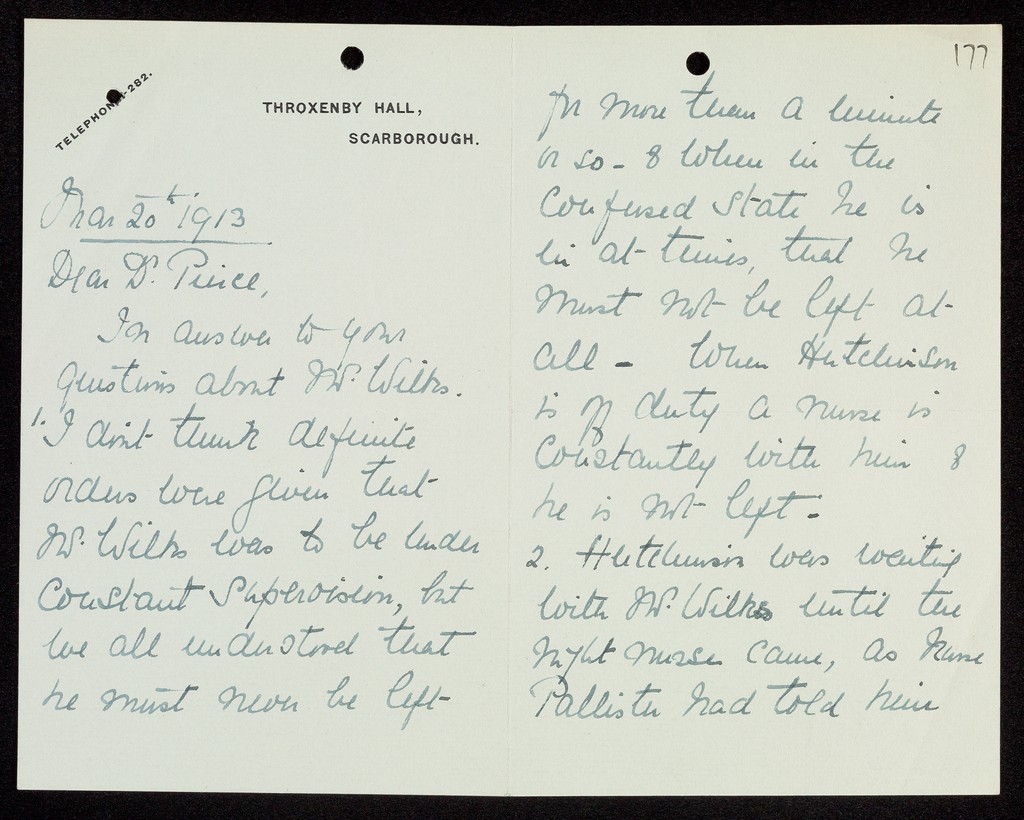 TELEPHONE-282.
THROXENBY HALL,
SCARBOROUGH.
Mar 20th 1913
Dear Dr. Pierce,
In answer to your
questions about Mr. Wilks.
1. I don't think definite
orders were given that
Mr. Wilks was to be under
Constant Supervision, but
we all understood that
he must never be left
177
for more than a minute
or so - & when in the
Confused State he is
in at times, that he
must not be left at
all - When Hutchinson
is off duty a nurse is
Constantly with him &
he is not left -
2. Hutchinson was waiting
with Mr. Wilks until the
Night nurse came, as Nurse
Pallister had told him